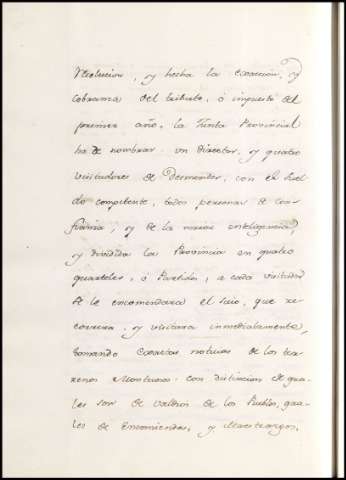 resolucion, y hecha la exaccion, y
cobranza del tributo, ó impuesto del
primer año, la Junta Provincial
ha de nombrar un Director, y quatro
visitadores de Desmontes, con el suel-
do competente, todos personas de con-
fianza, y de la mayor inteligencia,
y dividida la Provincia en quatro
quarteles, ó Partidos, a cada visitador
se le encomendara el suio, que re-
correra, y visitara immediatamente,
tomando exactas noticias de los ter-
renos Montuosos con distincion de qua-
les son de valdios de los Pueblos, qua-
les de Encomiendas, y Maestrazgos,